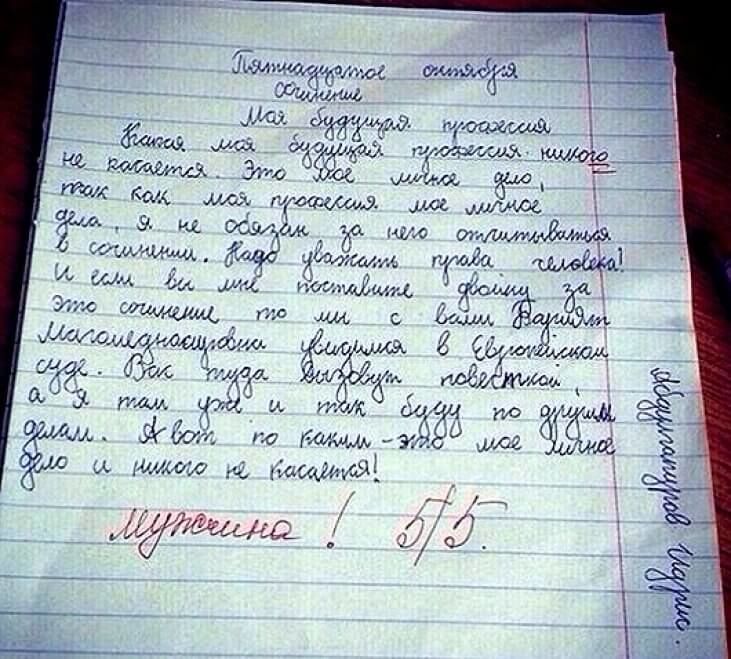 Пятнадцатое октября
Сочинение
Моя будущая профессия
Какая моя будущая профессия никого
не касается. Это мое личное дело,
так как моя профессия мое личное
дела, я не обязан за него отчитываться
в сочинении. Надо уважать права человека!
И если вы мне поставите двойку за
это сочинение то мы с вами Патият
Магомеднасировна увидимся в Европейском
суде. Вас туда вызовут повесткой,
а я там уже и так буду по другим
делам. А вот по каким - это мое личное
дело и никого не касается!
мужчина! 5/5.
Абдулгапуров Идрис.